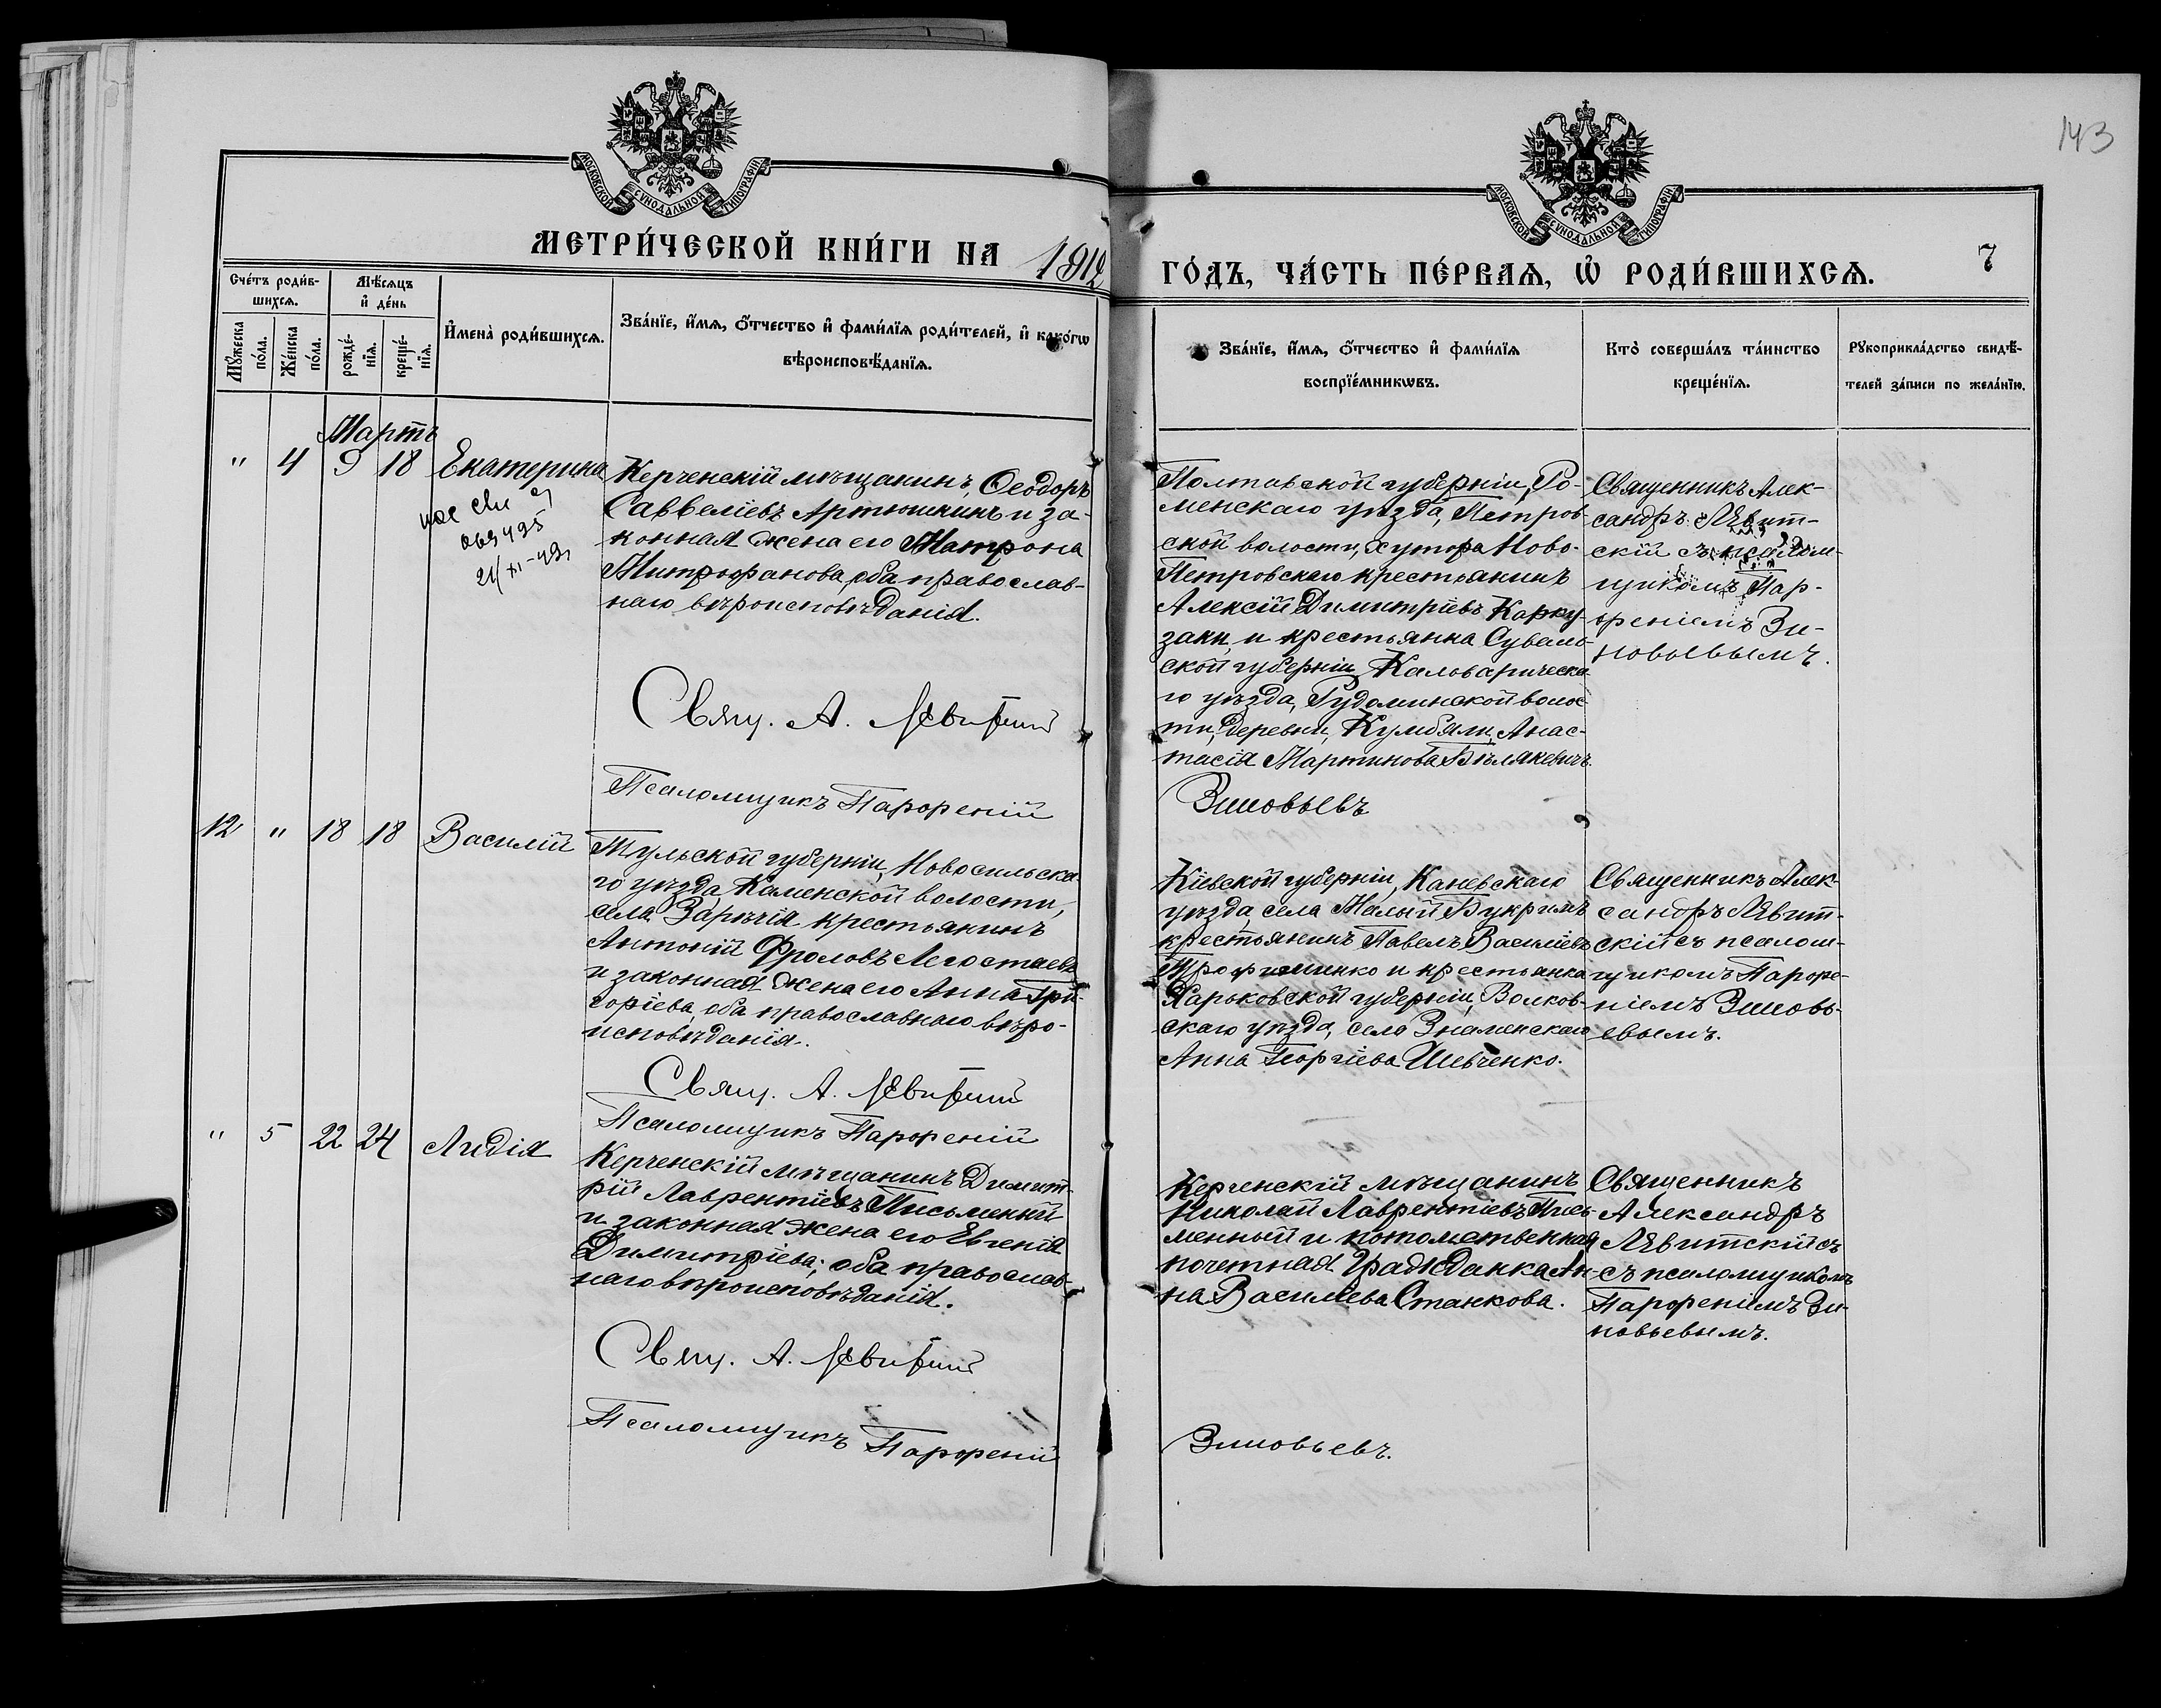 143
МОСКОВСКОЙ СѴНОДАЛЬНОЙ ТИПОГРАФІИ
МОСКОВСКОЙ СѴНОДАЛЬНОЙ ТИПОГРАФІИ
МЕТРИ́ЧЕСКОЙ КНИ́ГИ НА 1912
ГО́ДЪ, ЧА́СТЬ ПЕ́РВАЯ, Ѡ҆ РОДИ́ВШИХСЯ.
7
Сче́тъ роди́в-
шихся.
Мѣ́сяцъ
и҆ де́нь
Мꙋ́жеска
по́ла.
Же́нска
по́ла.
рожде́-
нїя.
креще́-
нїя.
И҆мена̀ роди́вшихся.
Зва́нїе, и҆́мя, ѻ҆́тчество и҆ фами́лїя роди́телей, и҆ како́гѡ
вѣроисповѣ́данїя.
Зва́нїе, и҆́мя, ѻ҆́тчество и҆ фами́лїя
воспрїе́мникѡвъ.
Кто̀ соверша́лъ та́инство
креще́нїя.
Рꙋкоприкла́дство свидѣ́-
телей за́писи по жела́нїю.
Мартъ
" 4 9 18 Екатерина
069495
21/XI-49
Керченскій мѣщанинъ, Ѳеодоръ
Саввеліевъ Артюшкинъ и за-
конная жена его Матрона
Митрофанова, оба православ-
наго вѣроисповѣданія.
Свящ. А. Левитскій
Псаломщикъ Парѳеній
Полтавской губерніи, Ро-
менскаго уѣзда, Петров-
ской волости, хутора Ново-
Петровскаго крестьянинъ
Алексій Димитріевъ Карку-
заки, и крестьянка Суваль-
ской губерніи Кальварическа-
го уѣзда, Рудоминской волос-
ти, деревни, Кумбали, Анас-
тасія Мартинова Бѣлякевичъ.
Зиновьевъ
Священникъ Алек-
сандръ Левит-
скій съ псалом-
щикомъ Пар-
ѳеніемъ Зи-
новьевымъ.
12 " 18 18 Василій
Тульской губерніи, Новосильска-
го уѣзда, Каменской волости,
села Зарѣчія крестьянинъ
Антоній Фроловъ Легостаевъ
и законная жена его Анна Гри-
горіева, оба православнаго вѣро-
исповѣданія.
Свящ. А. Левитскій
Псаломщикъ Парѳеній
Кіевской губерніи, Каневскаго
уѣзда, села Малый Букримъ
крестьянинъ Павелъ Василіевъ
Трофименко и крестьянка
Харьковской губерніи, Волков-
скаго уѣзда, села Знаменскаго
Анна Георгіева Шевченко.
Священникъ Алек-
сандръ Левит-
скій съ псалом-
щикомъ Парѳе-
ніемъ Зиновь-
евымъ.
" 5 22 24 Лидія
Керченскій мѣщанинъ Димит-
рій Лаврентіевъ Письменный
и законная жена его Евгенія
Димитріева; оба православ-
наго вѣроисповѣданія.
Свящ. А. Левитскій
Псаломщикъ Парѳеній
Керченскій мѣщанинъ
Николай Лаврентіевъ Пись-
менный и потомственная
почетная гражданка Ан-
на Василіева Станкова.
Зиновьевъ.
Священникъ
Александръ
Левитскій съ
съ псаломщикомъ
Парѳеніемъ Зи-
новьевымъ.